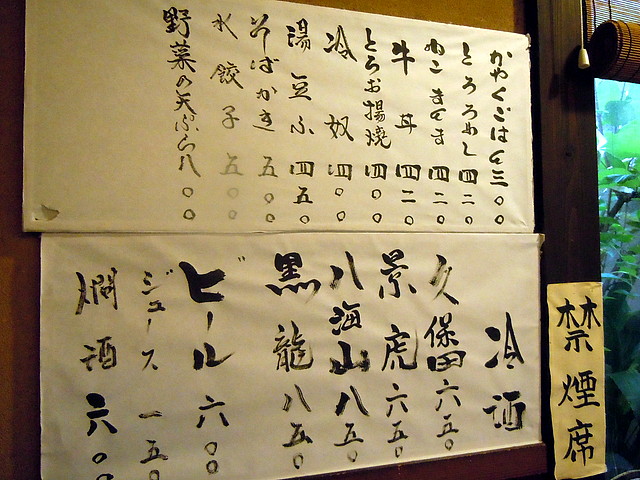 かやくごはん三〇〇
とろろめし四二〇
ねこまんま四二〇
牛丼四二〇
とろお揚焼四〇〇
冷奴四〇〇
湯豆ふ四五〇
そばがき五〇〇
水餃子五〇〇
野菜の天ぷら八〇〇
冷酒
久保田六五〇
景虎六五〇
八海山八五〇
黒龍八五〇
ビール六〇〇
ジュース一五〇
燗酒六〇〇
禁煙席